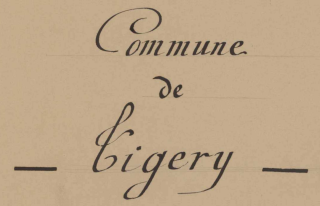 Commune
de
— Tigery —